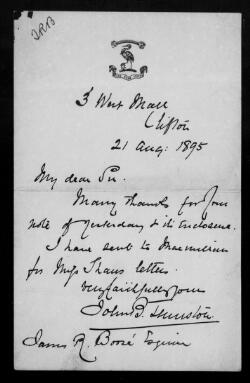 JRB
3 West Mall
Clifton
21 Aug: 1895
My dear Sir.
Many thanks for your
note of yesterday & its enclosure.
I have sent to Macmillan
for Miss Shaws letters.
Very faithfully yours
John B.
James R. Boosé Esquire